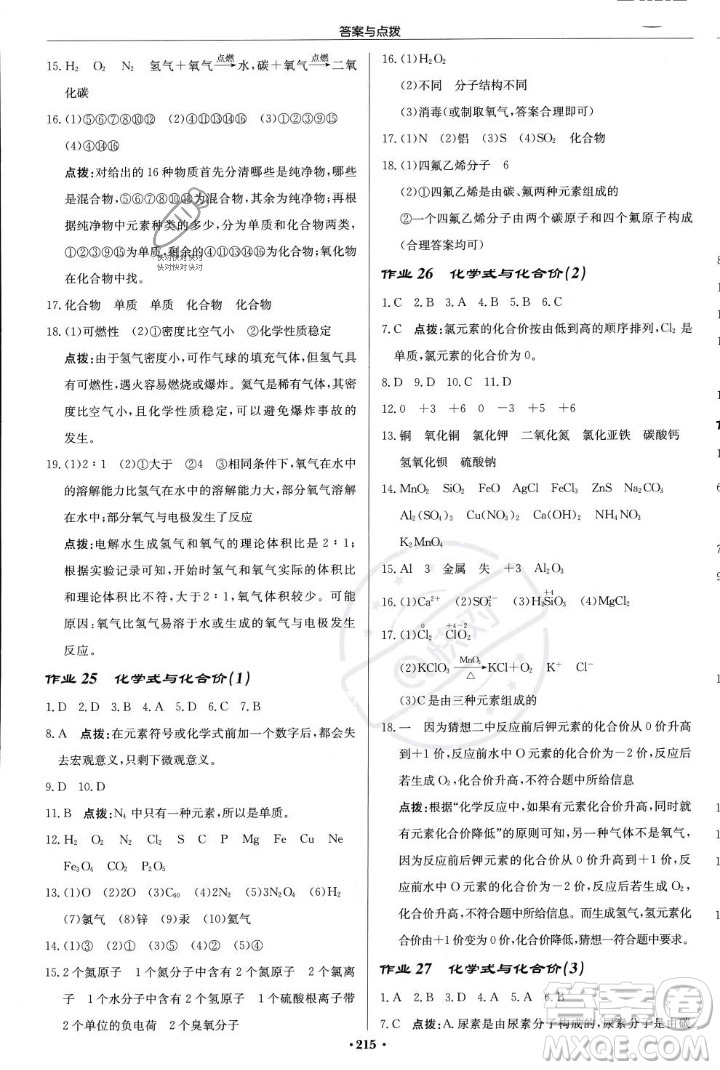 答案与点拨
15. H₂ O₂ N₂ 氢气+氧气—点燃→水,碳+氧气—点燃→二氧
化碳
16. (1)⑤⑥⑦⑧⑩⑫ (2)④⑭⑯ (3)①②③⑨⑪⑬⑮
(4)④⑭⑯
点拨:对给出的 16 种物质首先分清哪些是纯净物,哪些
是混合物,⑤⑥⑦⑧⑩⑫是混合物,其余是纯净物。再根
据纯净物中元素种类分为单质与化合物两类,
①②③⑨⑪⑬⑮是单质,剩余的④⑭⑯是化合物;氧化物
在化合物中找。
快对快对快对
快对快对快对
17. 化合物 单质 单质 化合物 化合物
18. (1)可燃性 (2)①密度比空气小 ②化学性质稳定
点拨:由于氢气密度小,可作气球的填充气体,但氢气具
有可燃性,遇火容易燃烧或爆炸。氦气是稀有气体,其密
度比空气小,且化学性质稳定,可以避免爆炸事故的
发生。
19. (1)2∶1 (2)①大于 ②4 ③相同条件下,氧气在水中
的溶解能力比氢气在水中的溶解能力大;部分氧气溶解
在水中;部分氧气与电极发生了反应
点拨:电解水生成氢气和氧气的理论体积比是 2∶1;
根据实验记录可知,开始时氢气和氧气实际的体积
比和理论体积比不符,大于 2∶1,氧气体积较少。可能
原因:氧气比氢气易溶于水或生成的氧气与电极发生
反应。
作业 25 化学式与化合价(1)
1. D 2. D 3. A 4. D 5. C 6. C 7. B
8. A 点拨:在元素符号或化学式前加一个数字后,都会失
去宏观意义,只剩下微观意义。
9. D 10. D
11. B 点拨:N₄ 中只有一种元素,所以是单质。
12. H₂ O₂ N₂ Cl₂ S C P Mg Fe Cu Ne
Fe₃O₄ CO₂ P₂O₅
13. (1)O (2)2O (3)C₆₀ (4)2N₂ (5)O₂ (6)H₂
(7)氯气 (8)锌 (9)汞 (10)氦气
14. (1)③ (2)① (3)④ (4)②
15. 2 个氮原子 1 个氮分子中含有 2 个氮原子 2 个氯离
子 1 个水分子中含有 2 个氢原子 1 个硫酸根离子带
2 个单位的负电荷 2 个臭氧分子
16. (1)H₂O₂
(2)不同 分子结构不同
(3)消毒(或制取氧气,答案合理即可)
17. (1)N (2)铝 (3)4 (4)SO₂ 化合物
18. (1)四氟乙烯分子 6
(2)①四氟乙烯是由碳、氟两种元素组成的
②一个四氟乙烯分子由两个碳原子和四个氟原子构成
(合理答案均可)
作业 26 化学式与化合价(2)
1. C 2. B 3. A 4. B 5. B 6. C
7. C 点拨:氯元素的化合价按由低到高的顺序排列,Cl₂ 是
单质,氯元素的化合价为 0。
8. D 9. D 10. C 11. D
12. 0 +3 +6 −2 +4 +5 +6
13. 铜 氧化铜 氯化钾 二氧化氮 氯化亚铁 碳酸钙
氢氧化钡 硫酸钠
14. MnO₂ SiO₂ FeO AgCl FeCl₃ ZnS Na₂CO₃
Al₂(SO₄)₃ Cu(NO₃)₂ Al(OH)₃
15. Al 3 金属 失 +3 Al₂O₃
16. (1)Ca²⁺ (2)SO₄²⁻ (3)H₂SiO₃(+4)
17. (1)Cl₂(0) ClO₂(+4−2)
(2)KClO₃ —MnO₂/△→ KCl+O₂ K⁺ Cl⁻
(3)C是由三种元素组成的
18. 一 因为猜想二中反应前后钾元素的化合价从 0 价升高
到+1价,反应前水中 O 元素的化合价为−2,反应后为
0,两种元素化合价升高,不符合题中所给信息
点拨:根据“化学反应中,如果有元素化合价升高,同时就
有元素化合价降低”的原则可知,另一种气体不是氧气,
因为反应前后钾元素的化合价从 0 价升高到+1价,反
应前水中 O 元素的化合价为−2,若反应后生成 O₂,则
化合价升高,不符合题中所给信息。而生成氢气,氢元素
化合价由+1价变为 0 价,化合价降低,猜想一符合题中
所给信息。
作业 27 化学式与化合价(3)
1. A 2. D 3. C 4. A 5. A 6. B
7. C 点拨:A.尿素是由尿素分子构成的,尿素分子是由碳
· 215 ·
答案圈
MXQE.COM